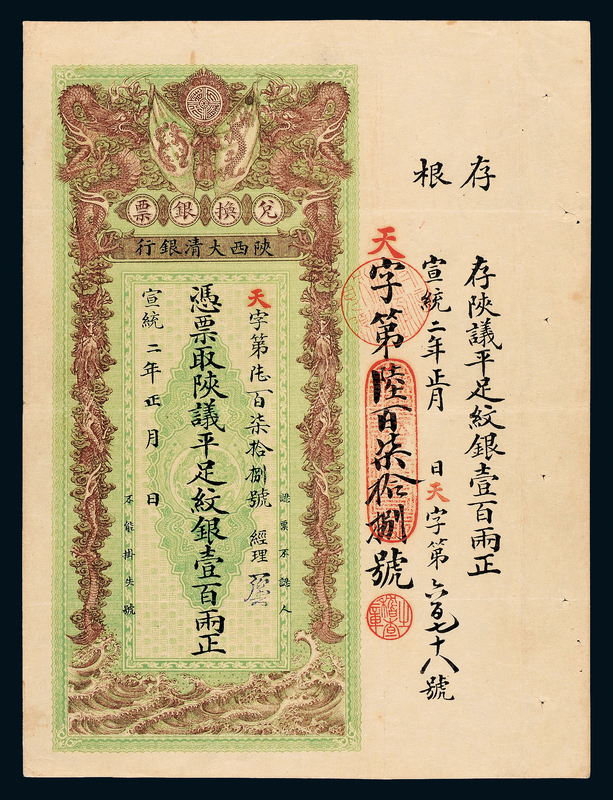 存根
存陝議平足紋銀壹百兩正
宣統二年正月 日天字第六百七十八號
天字第陸百柒拾捌號
兌換銀票
陝西大清銀行
天字第陸百柒拾捌號 經理
認票不認人
憑票取陝議平足紋銀壹百兩正
宣統二年正月 日
不能掛失號